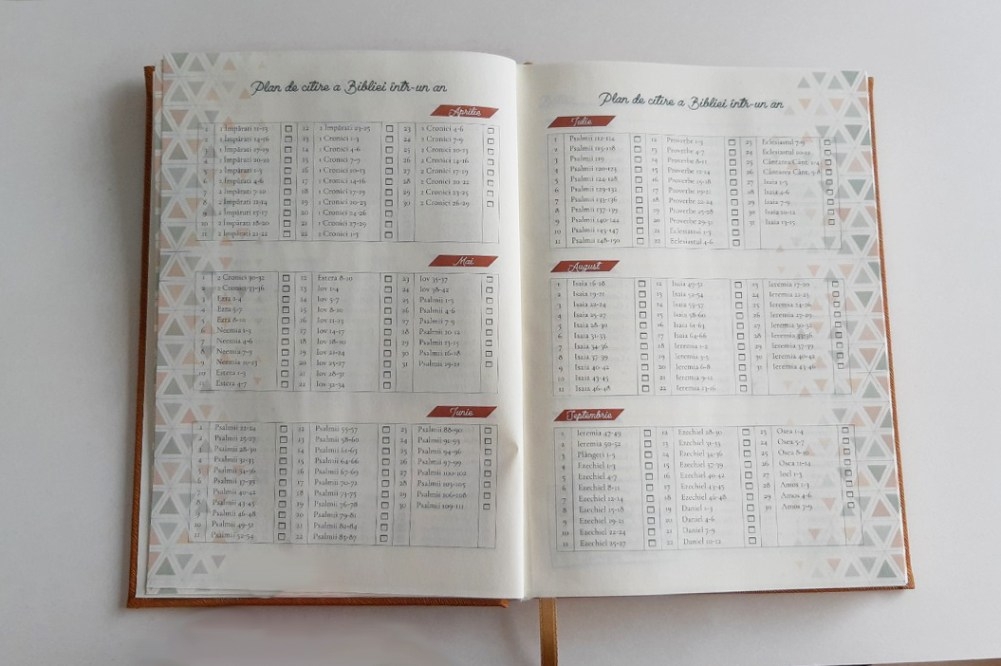 Plan de citire a Bibliei într-un an
Aprilie
1 1 Împărați 11-13 12 2 Împărați 23-25 23 2 Cronici 4-6
2 1 Împărați 14-16 13 1 Cronici 1-3 24 2 Cronici 7-9
3 1 Împărați 17-19 14 1 Cronici 4-6 25 2 Cronici 10-13
4 1 Împărați 20-22 15 1 Cronici 7-9 26 2 Cronici 14-16
5 2 Împărați 1-3 16 1 Cronici 10-13 27 2 Cronici 17-19
6 2 Împărați 4-6 17 1 Cronici 14-16 28 2 Cronici 20-22
7 2 Împărați 7-10 18 1 Cronici 17-19 29 2 Cronici 23-25
8 2 Împărați 11-14 19 1 Cronici 20-23 30 2 Cronici 26-29
9 2 Împărați 15-17 20 1 Cronici 24-26
10 2 Împărați 18-20 21 1 Cronici 27-29
11 2 Împărați 21-22 22 2 Cronici 1-3
Mai
1 2 Cronici 30-32 12 Estera 8-10 23 Iov 35-37
2 2 Cronici 33-36 13 Iov 1-4 24 Iov 38-42
3 Ezra 1-4 14 Iov 5-7 25 Psalmii 1-3
4 Ezra 5-7 15 Iov 8-10 26 Psalmii 4-6
5 Ezra 8-10 16 Iov 11-13 27 Psalmii 7-9
6 Neemia 1-3 17 Iov 14-17 28 Psalmii 10-12
7 Neemia 4-6 18 Iov 18-20 29 Psalmii 13-15
8 Neemia 7-9 19 Iov 21-24 30 Psalmii 16-18
9 Neemia 10-13 20 Iov 25-27 31 Psalmii 19-21
10 Estera 1-3 21 Iov 28-31
11 Estera 4-7 22 Iov 32-34
Iunie
1 Psalmii 22-24 12 Psalmii 55-57 23 Psalmii 88-90
2 Psalmii 25-27 13 Psalmii 58-60 24 Psalmii 91-93
3 Psalmii 28-30 14 Psalmii 61-63 25 Psalmii 94-96
4 Psalmii 31-33 15 Psalmii 64-66 26 Psalmii 97-99
5 Psalmii 34-36 16 Psalmii 67-69 27 Psalmii 100-102
6 Psalmii 37-39 17 Psalmii 70-72 28 Psalmii 103-105
7 Psalmii 40-42 18 Psalmii 73-75 29 Psalmii 106-108
8 Psalmii 43-45 19 Psalmii 76-78 30 Psalmii 109-111
9 Psalmii 46-48 20 Psalmii 79-81
10 Psalmii 49-51 21 Psalmii 82-84
11 Psalmii 52-54 22 Psalmii 85-87
Plan de citire a Bibliei într-un an
Iulie
1 Psalmii 112-114 12 Proverbe 1-3 23 Eclesiastul 7-9
2 Psalmii 115-118 13 Proverbe 4-7 24 Eclesiastul 10-12
3 Psalmii 119 14 Proverbe 8-11 25 Cântarea Cânt. 1-4
4 Psalmii 120-123 15 Proverbe 12-14 26 Cântarea Cânt. 5-8
5 Psalmii 124-128 16 Proverbe 15-18 27 Isaia 1-3
6 Psalmii 129-132 17 Proverbe 19-21 28 Isaia 4-6
7 Psalmii 133-136 18 Proverbe 22-24 29 Isaia 7-9
8 Psalmii 137-139 19 Proverbe 25-28 30 Isaia 10-12
9 Psalmii 140-142 20 Proverbe 29-31 31 Isaia 13-15
10 Psalmii 143-147 21 Eclesiastul 1-3
11 Psalmii 148-150 22 Eclesiastul 4-6
August
1 Isaia 16-18 12 Isaia 49-51 23 Ieremia 17-20
2 Isaia 19-21 13 Isaia 52-54 24 Ieremia 21-23
3 Isaia 22-24 14 Isaia 55-57 25 Ieremia 24-26
4 Isaia 25-27 15 Isaia 58-60 26 Ieremia 27-29
5 Isaia 28-30 16 Isaia 61-63 27 Ieremia 30-32
6 Isaia 31-33 17 Isaia 64-66 28 Ieremia 33-36
7 Isaia 34-36 18 Ieremia 1-2 29 Ieremia 37-39
8 Isaia 37-39 19 Ieremia 3-5 30 Ieremia 40-42
9 Isaia 40-42 20 Ieremia 6-8 31 Ieremia 43-46
10 Isaia 43-45 21 Ieremia 9-12
11 Isaia 46-48 22 Ieremia 13-16
Septembrie
1 Ieremia 47-49 12 Ezechiel 28-30 23 Osea 1-4
2 Ieremia 50-52 13 Ezechiel 31-33 24 Osea 5-7
3 Plângeri 1-5 14 Ezechiel 34-36 25 Osea 8-10
4 Ezechiel 1-3 15 Ezechiel 37-39 26 Osea 11-14
5 Ezechiel 4-7 16 Ezechiel 40-42 27 Ioel 1-3
6 Ezechiel 8-11 17 Ezechiel 43-45 28 Amos 1-3
7 Ezechiel 12-14 18 Ezechiel 46-48 29 Amos 4-6
8 Ezechiel 15-18 19 Daniel 1-3 30 Amos 7-9
9 Ezechiel 19-21 20 Daniel 4-6
10 Ezechiel 22-24 21 Daniel 7-9
11 Ezechiel 25-27 22 Daniel 10-12